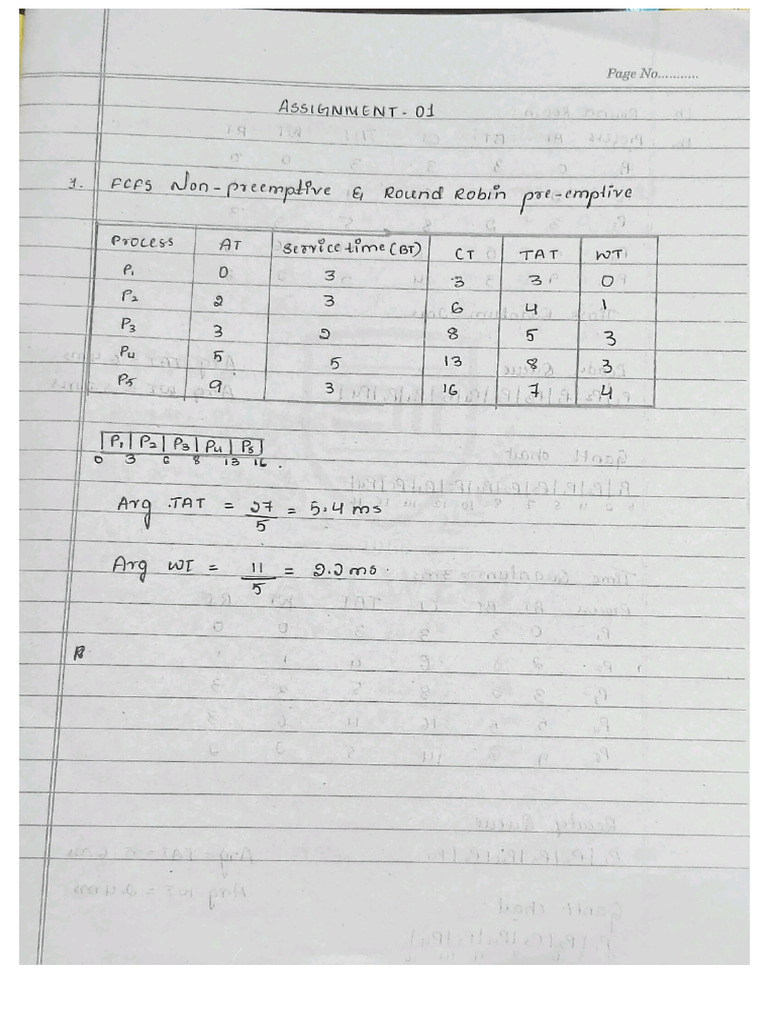 Page No...........
ASSIGNMENT - 01
1. FCFS Non-preemptive & Round Robin pre-emptive
Process AT Service time (BT) CT TAT WT
P1 0 3 3 3 0
P2 2 3 6 4 1
P3 3 2 8 5 3
P4 5 5 13 8 3
P5 9 3 16 7 4
|P1|P2|P3|P4|P5|
0 3 6 8 13 16.
Arg .TAT = 27/5 = 5.4 ms
Arg WT = 11/5 = 2.2 ms.